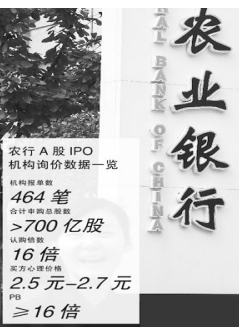 农业银行
RAL BANK OF CHINA
农行 A 股 IPO
机构询价数据一览
机构报单数
464 笔
合计申购总股数
>700 亿股
认购倍数
16 倍
买方心理价格
2.5 元-2.7 元
PB
≥16 倍